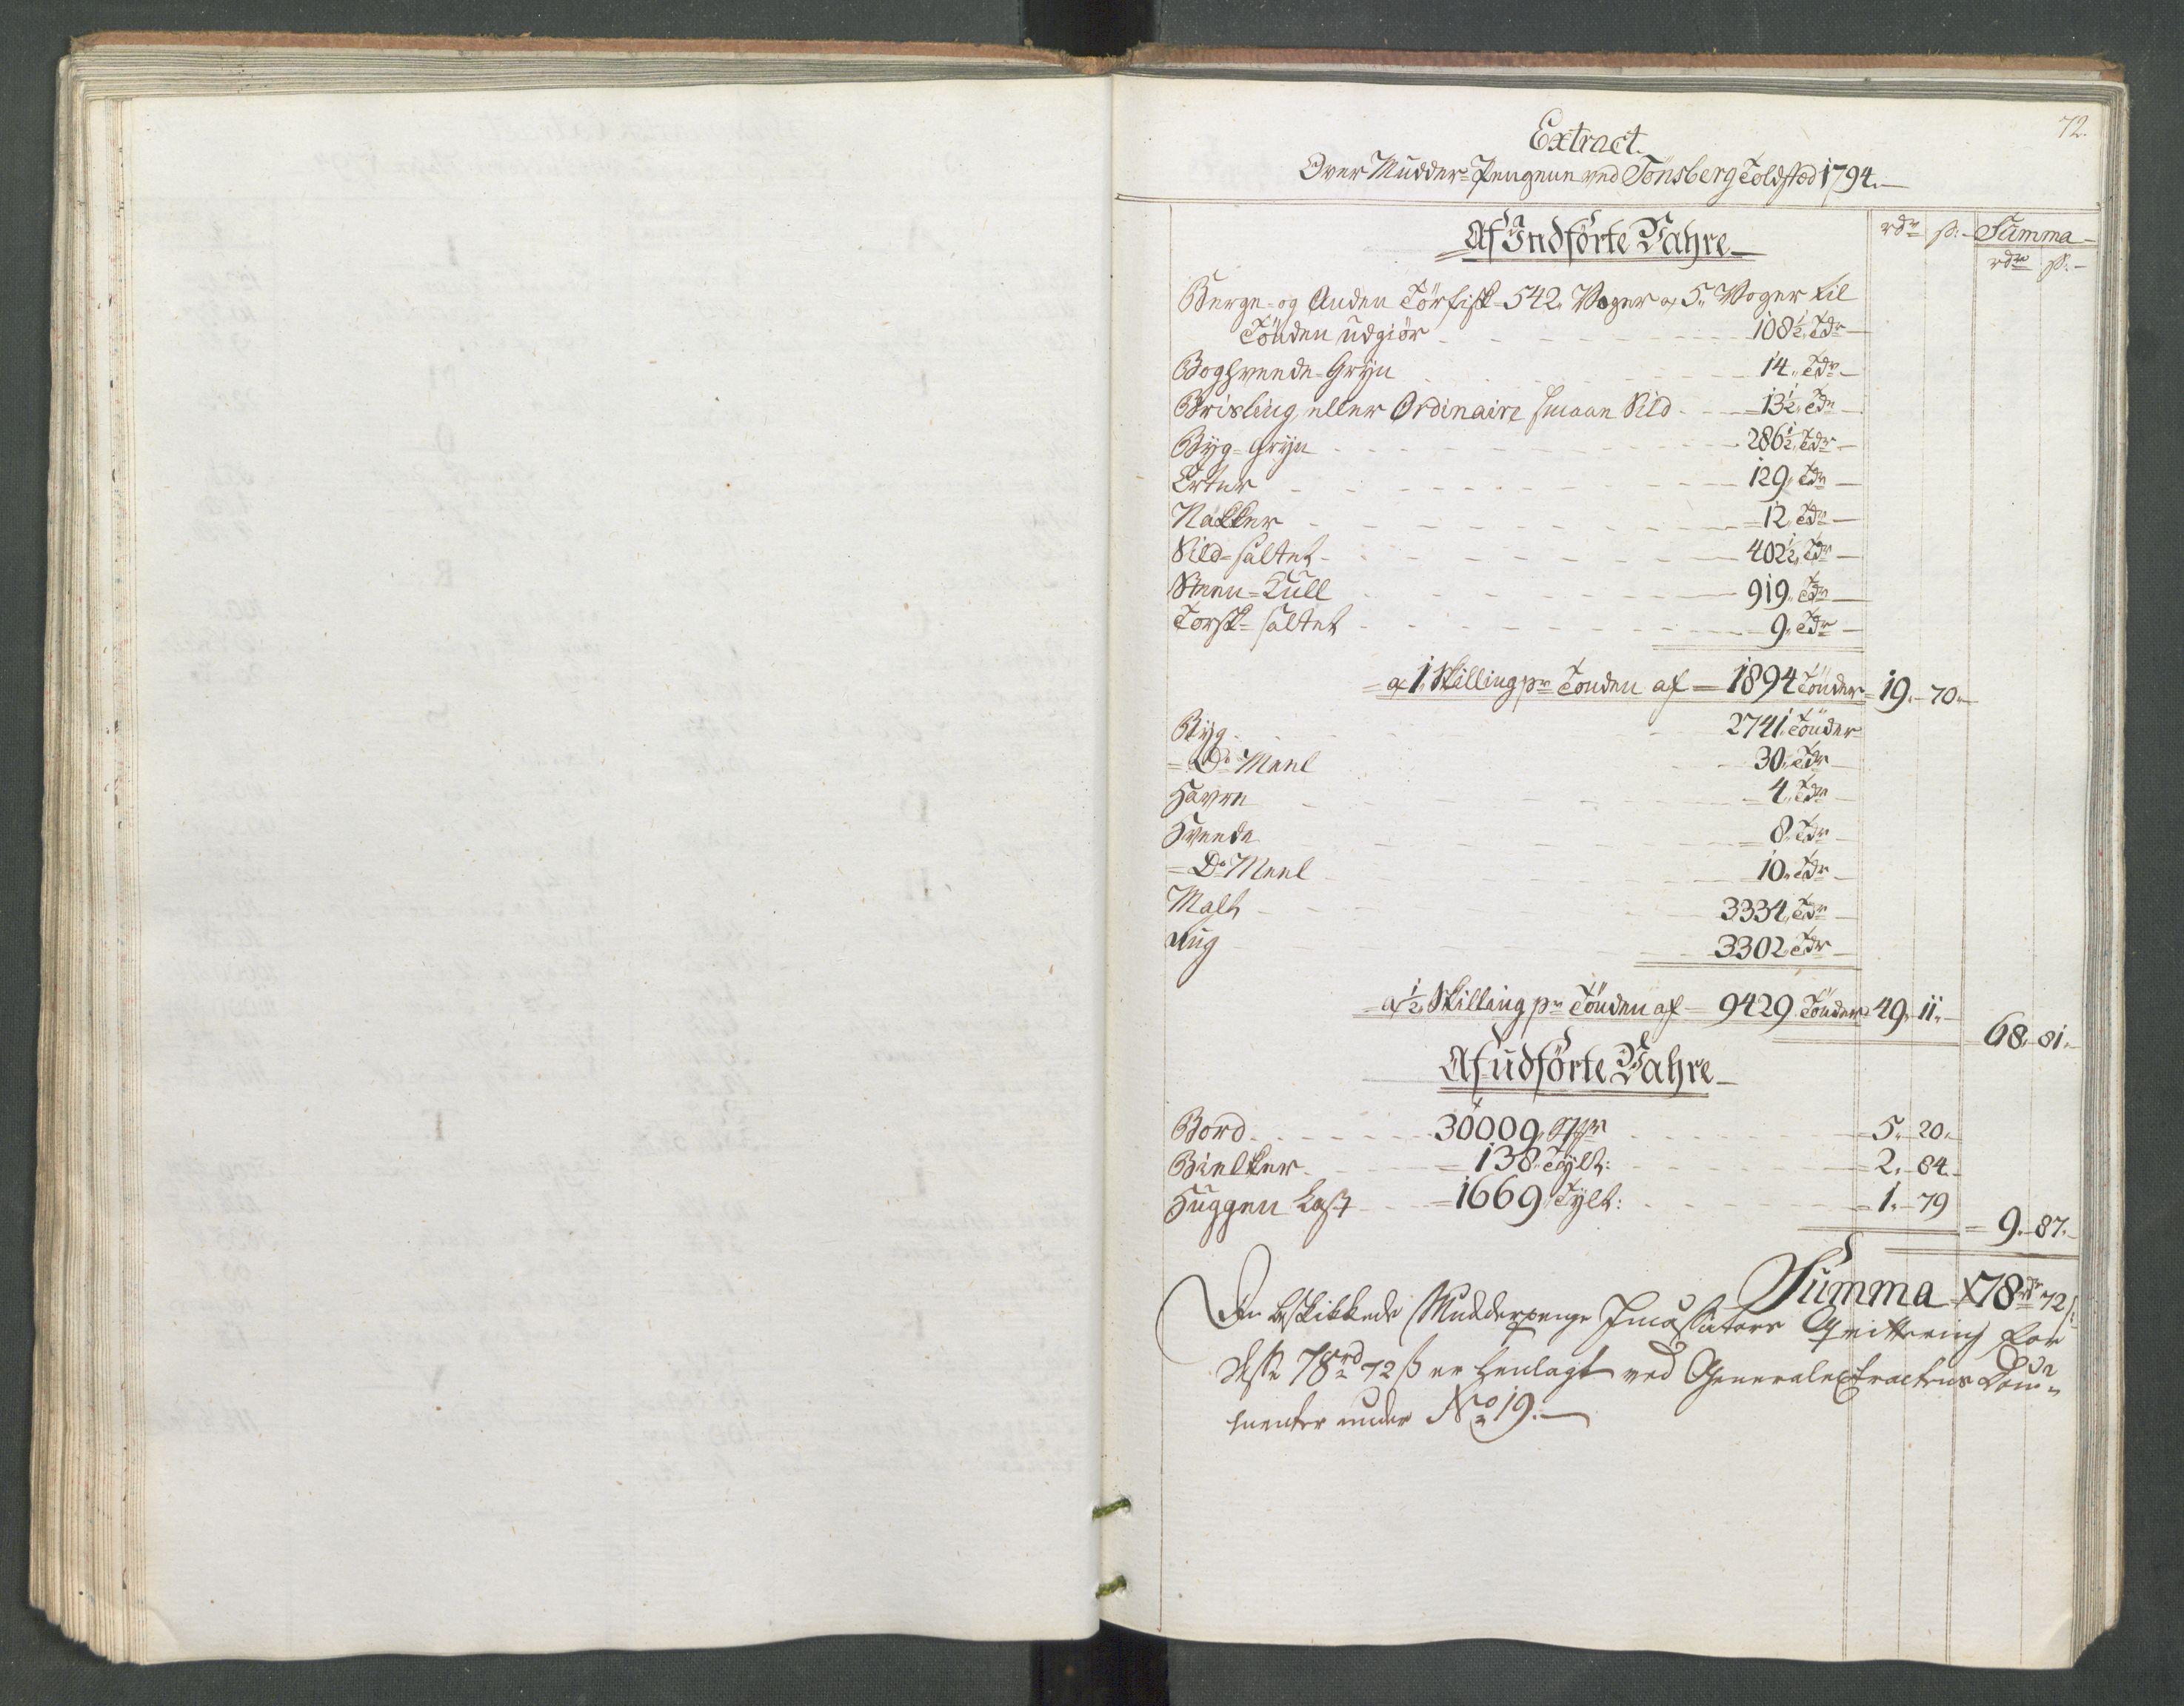 72.
Extract.
Over Mudder-Pengene ved Tönsberg Toldsted 1794.—
Af Indförte Vahre
rdr ß. Summa
rdr ß.
Berge- og Anden Törfisk 542 Woger a 5 Woger til
Tönden udgiör 108½ Tdr
Boghveede-Gryn 14 Tdr
Brisling eller Ordinaire smaae Sild 13½ Tdr
Byg-Gryn 286½ Tdr
Erter 129 Tdr
Nakker 12 Tdr
Sild-saltet 402½ Tdr
Steen-Kull 919 Tdr
Torsk-saltet 9 Tdr
a 1 Skilling pr Tönden af 1894 Tönder 19. 70.
Byg 2741 Tönder
Do Meel 30 Tdr
Havre 4 Tdr
Hvede 8 Tdr
Do Meel 10 Tdr
Malt 3334 Tdr
Rug 3302 Tdr
a ½ Skilling pr Tönden af 9429 Tönder 49. 11.
68. 81.
Af udförte Vahre
Bord 30009 5. 20.
Bielker 138 Tylt: 2. 84.
Huggen Last 1669 Tylt: 1. 79
9. 87.
Summa 78 rdr 72 ß
Den beskikkede Mudderpenge Incassators Qvittering for
disse 78 rd 72 ß er henlagt ved Generalextractens Docu=
menter under No 19.—